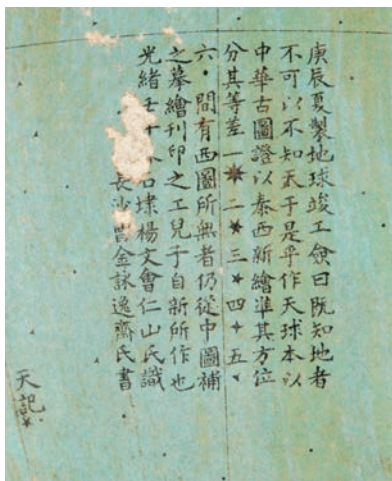 庚辰夏製地球竣工僉曰既知地者
不可以不知天于是乎作天球本以
中華古圖證以泰西新繪準其方位
分其等差一✷二✶三★四✦五▾
六・間有西圖所無者仍從中圖補
之摹繪刊印之工兒子自新所作也
光緒壬午石埭楊文會仁山氏識
長沙曹金詠逸齋氏書
天記